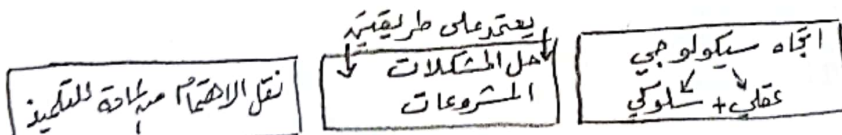 اتجاه سيكولوجي
عقلي + سلوكي
يعتمد على طريقتين
حل المشكلات
المشروعات
نقل الاهتمام من المادة للتلميذ